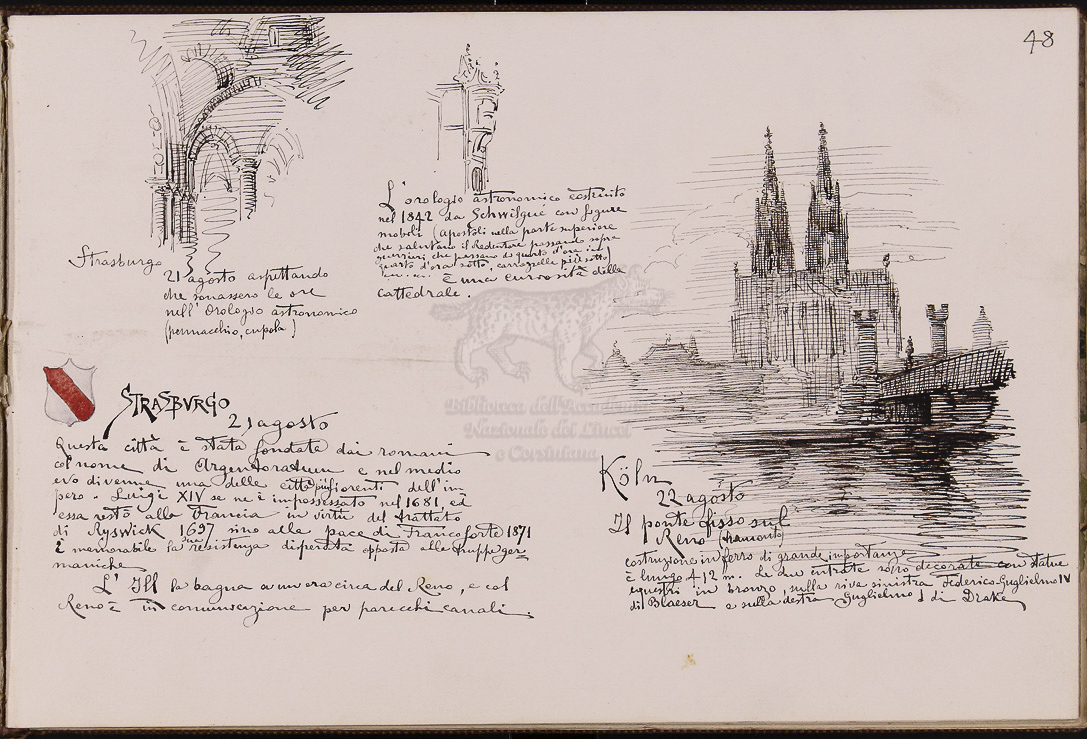 48
Strasburgo
21 agosto aspettando
che sonassero le ore
nell'Orologio astronomico
(pennacchio, cupola)
L'orologio astronomico costruito
nel 1842 da Schwilgué con figure
mobili (apostoli nella parte superiore
che salutano il Redentore passando sopra
guerrieri che passano di quarto d'ora in
quarto d'ora sotto, carrozzelle più sotto)
è una curiosità della
cattedrale.
STRASBVRGO
21 agosto
Questa città è stata fondata dai romani
col nome di Argentoratum e nel medio
evo divenne una delle città più fiorenti dell'im
pero. Luigi XIV se ne è impossessato nel 1681, ed
essa restò alla Francia in virtù del trattato
di Ryswick 1697 sino alla pace di Francoforte 1871
È memorabile la resistenza disperata opposta alle truppe ger
maniche
L'Ill la bagna a un'ora circa del Reno, e col
Reno è in comunicazione per parecchi canali.
Köln
22 agosto
Il ponte fisso sul
Reno (tramonto)
costruzione in ferro di grande importanza
è lungo 412 m. Le due entrate sono decorate con statue
equestri in bronzo, sulla riva sinistra Federico-Guglielmo IV
di Blaeser e sulla destra Guglielmo I di Drake
Biblioteca dell'Accademia
Nazionale dei Lincei
e Corsiniana